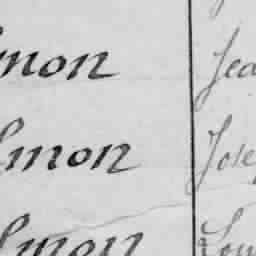 mon Jea
lmon Jose
lmon Lou